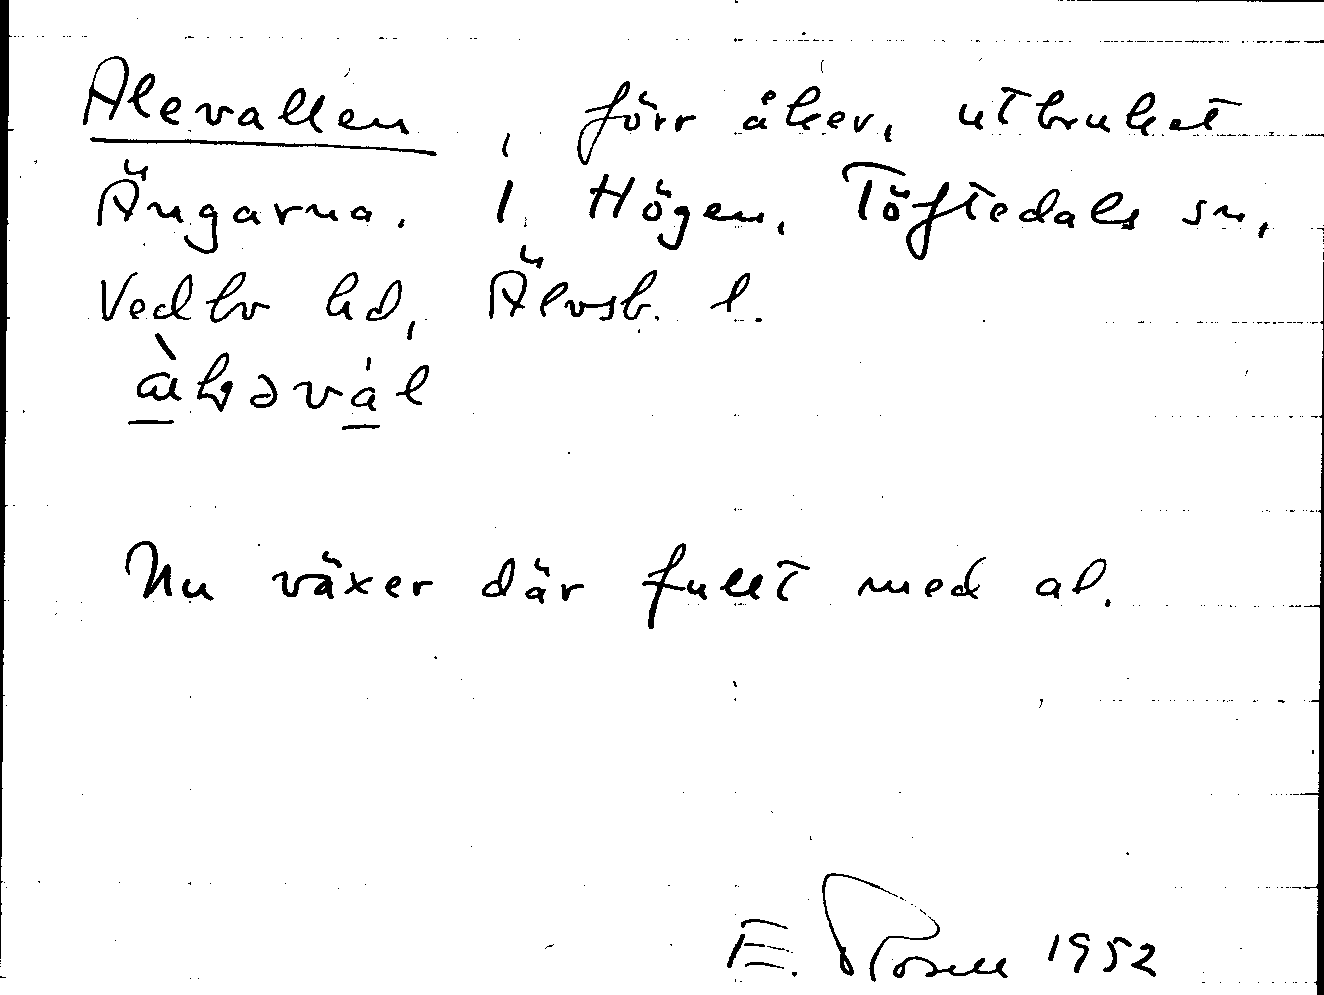 Alevallen, förr åker, utbruket
Ängarna. 1 Högen, Töftedals sn,
Vedbo hd, Älvsb. l.
Nu växer där fullt med al.
E. Rosell 1952